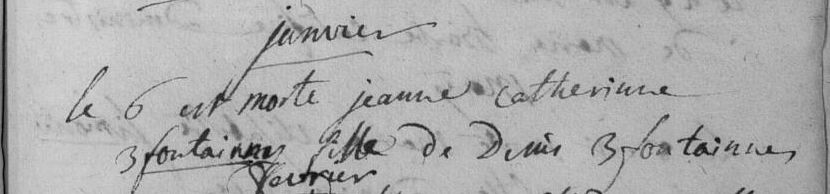 janvier
le 6 est morte jeanne catherinne
3fontainnes fille de Denis 3fontainnes
fevrier